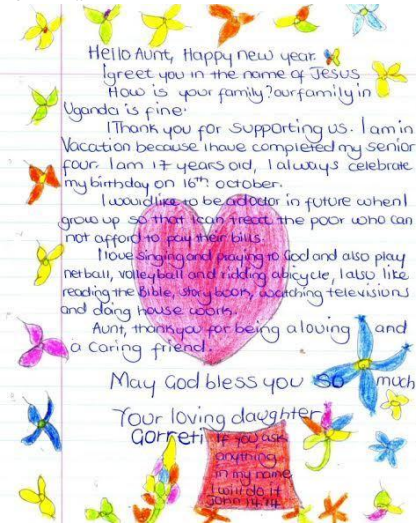 Hello Aunt, Happy new year.
I greet you in the name of Jesus
How is your family? our family in
Uganda is fine.
I Thank you for supporting us. I am in
Vacation because i have completed my senior
four. I am 17 years old, I always celebrate
my birthday on 16th october.
I would like to be a doctor in future when I
grow up so that i can treat the poor who can
not afford to pay their bills.
I love singing and praying to God and also play
netball, volleyball and ridding a bicycle, I also like
reading the Bible, story book, watching televisions
and doing house work.
Aunt, thank you for being a loving and
a caring friend.
May God bless you so much
Your loving daughter
Gorreti
If you ask
anything
in my name
I will do it
John 14:14